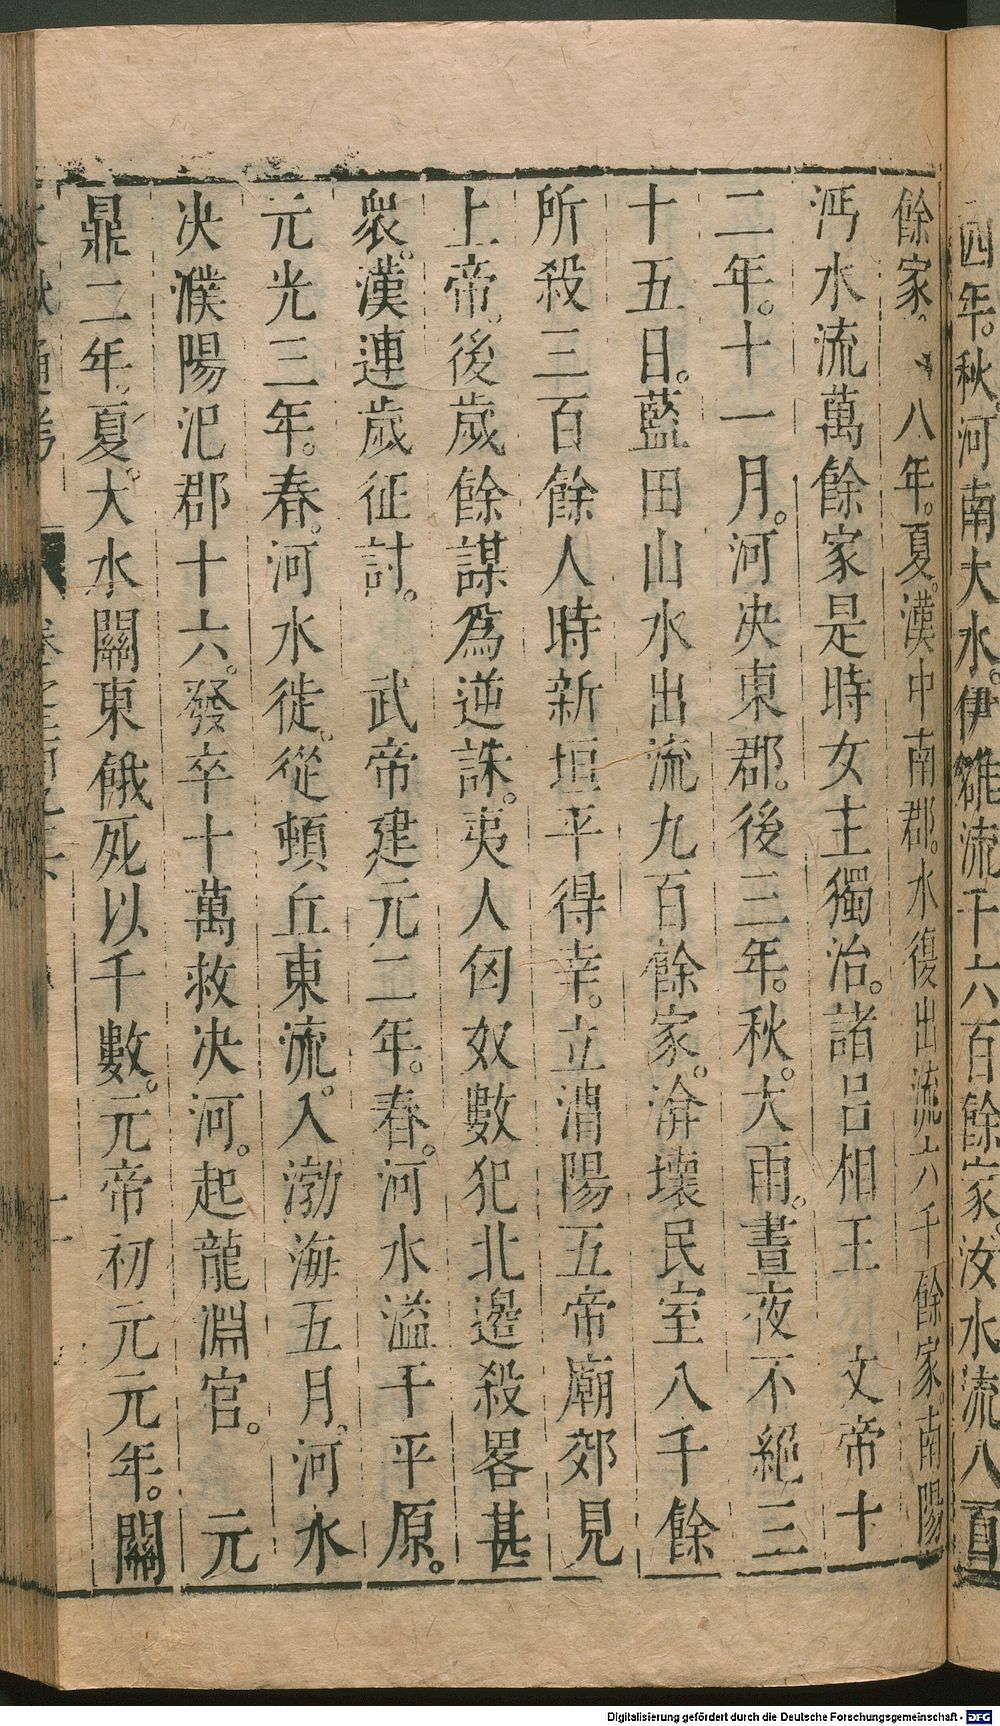 四年。秋。河南大水。伊雒流千六百餘家。汝水流八百
餘家。八年。夏。漢中南郡。水復出流六千餘家。南陽
沔水流萬餘家是時女主獨治。諸呂相王　文帝十
二年。十一月。河決東郡。後三年。秋。大雨。晝夜不絕三
十五日。藍田山水出流九百餘家。渰壞民室八千餘
所殺三百餘人時新垣平得幸。立渭陽五帝廟郊見
上帝。後歲餘謀爲逆誅。夷人匈奴數犯北邊殺畧甚
衆。漢連歲征討。　武帝建元二年。春。河水溢于平原。
元光三年。春。河水徙。從頓丘東流。入渤海五月。河水
決濮陽汜郡十六。發卒十萬救決河。起龍淵官。　元
鼎二年。夏。大水關東餓死以千數。元帝初元元年。關
Digitalisierung gefördert durch die Deutsche Forschungsgemeinschaft - DFG